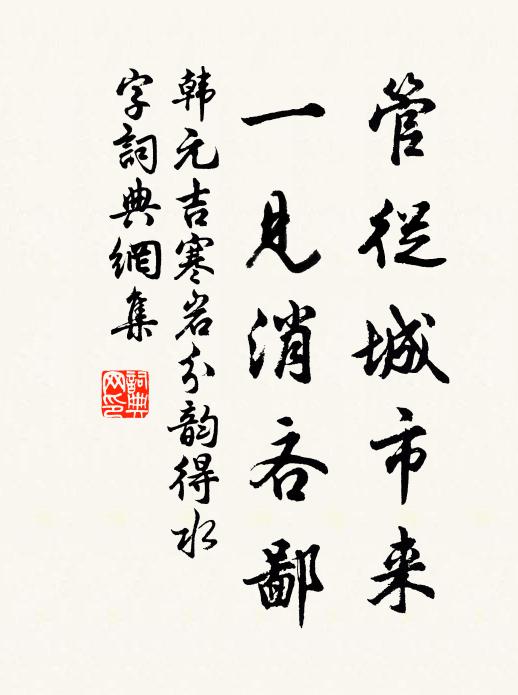 管從城市来
一見消吝鄙
韩元吉寒岩分韵得水
字詞典網集
詞典
网印